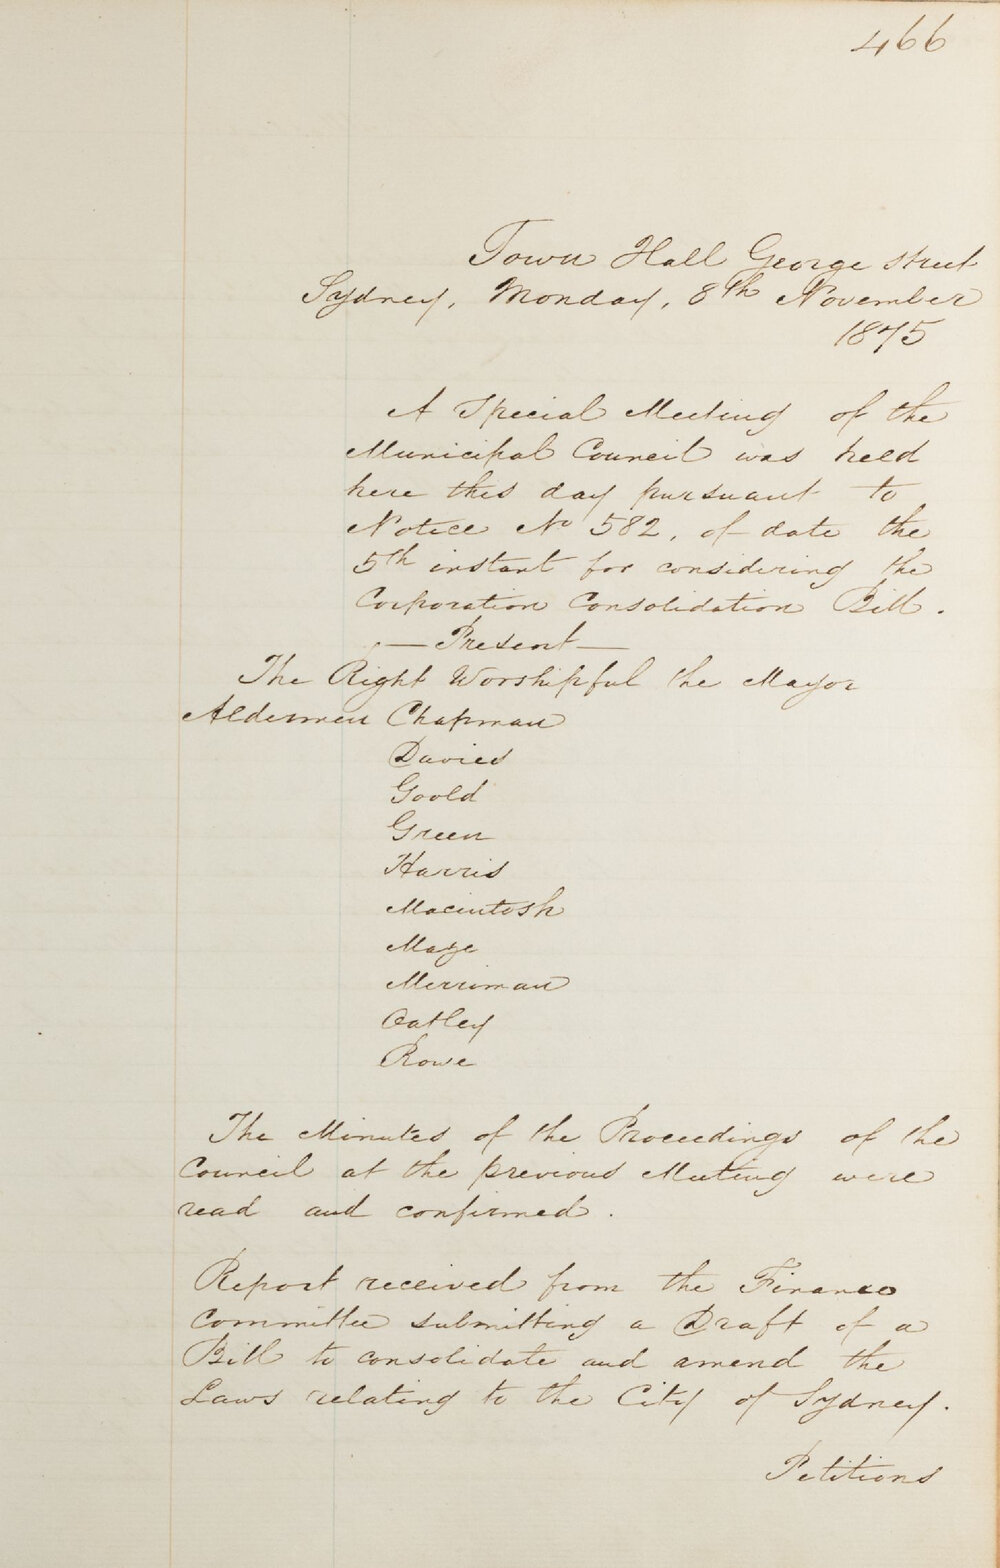 466
Town Hall George street
Sydney, Monday, 8th November
1875
A Special Meeting of the
Municipal Council was held
here this day pursuant to
Notice No 582, of date the
5th instant for considering the
Corporation Consolidation Bill.
— Present —
The Right Worshipful the Mayor
Aldermen Chapman
Davies
Goold
Green
Harris
Macintosh
Maze
Merriman
Oatley
Rowe
The Minutes of the Proceedings of the
Council at the previous Meeting were
read and confirmed.
Report received from the Finance
Committee submitting a Draft of a
Bill to consolidate and amend the
Laws relating to the City of Sydney.
Petitions